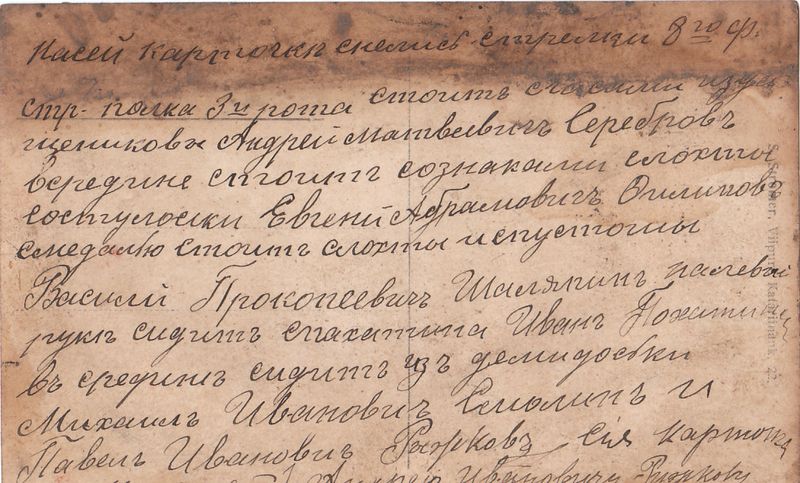 Насей карточкѣ снелись стрелки 8го ф.
стр. полка 3й рота стоитъ счасами изъ
щениковы Андрей Матвѣевичъ Серебровъ
Всредине стоитъ сознаками слохты
состулоски Евгений Абрамовичъ Филиповъ
смедалью стоитъ слохты испустоши
Василий Прокопеевичъ Шаляпинъ налевой
рукѣ сидитъ спахатина Иванъ
въ срединѣ сидитъ изъ демидовки
Михаилъ Ивановичъ Смолинъ и
Павелъ Ивановичъ Рыжковъ Сія карточка
Андрею Ивановичу Рыжкову
Viipuri, Katarinank. 22.